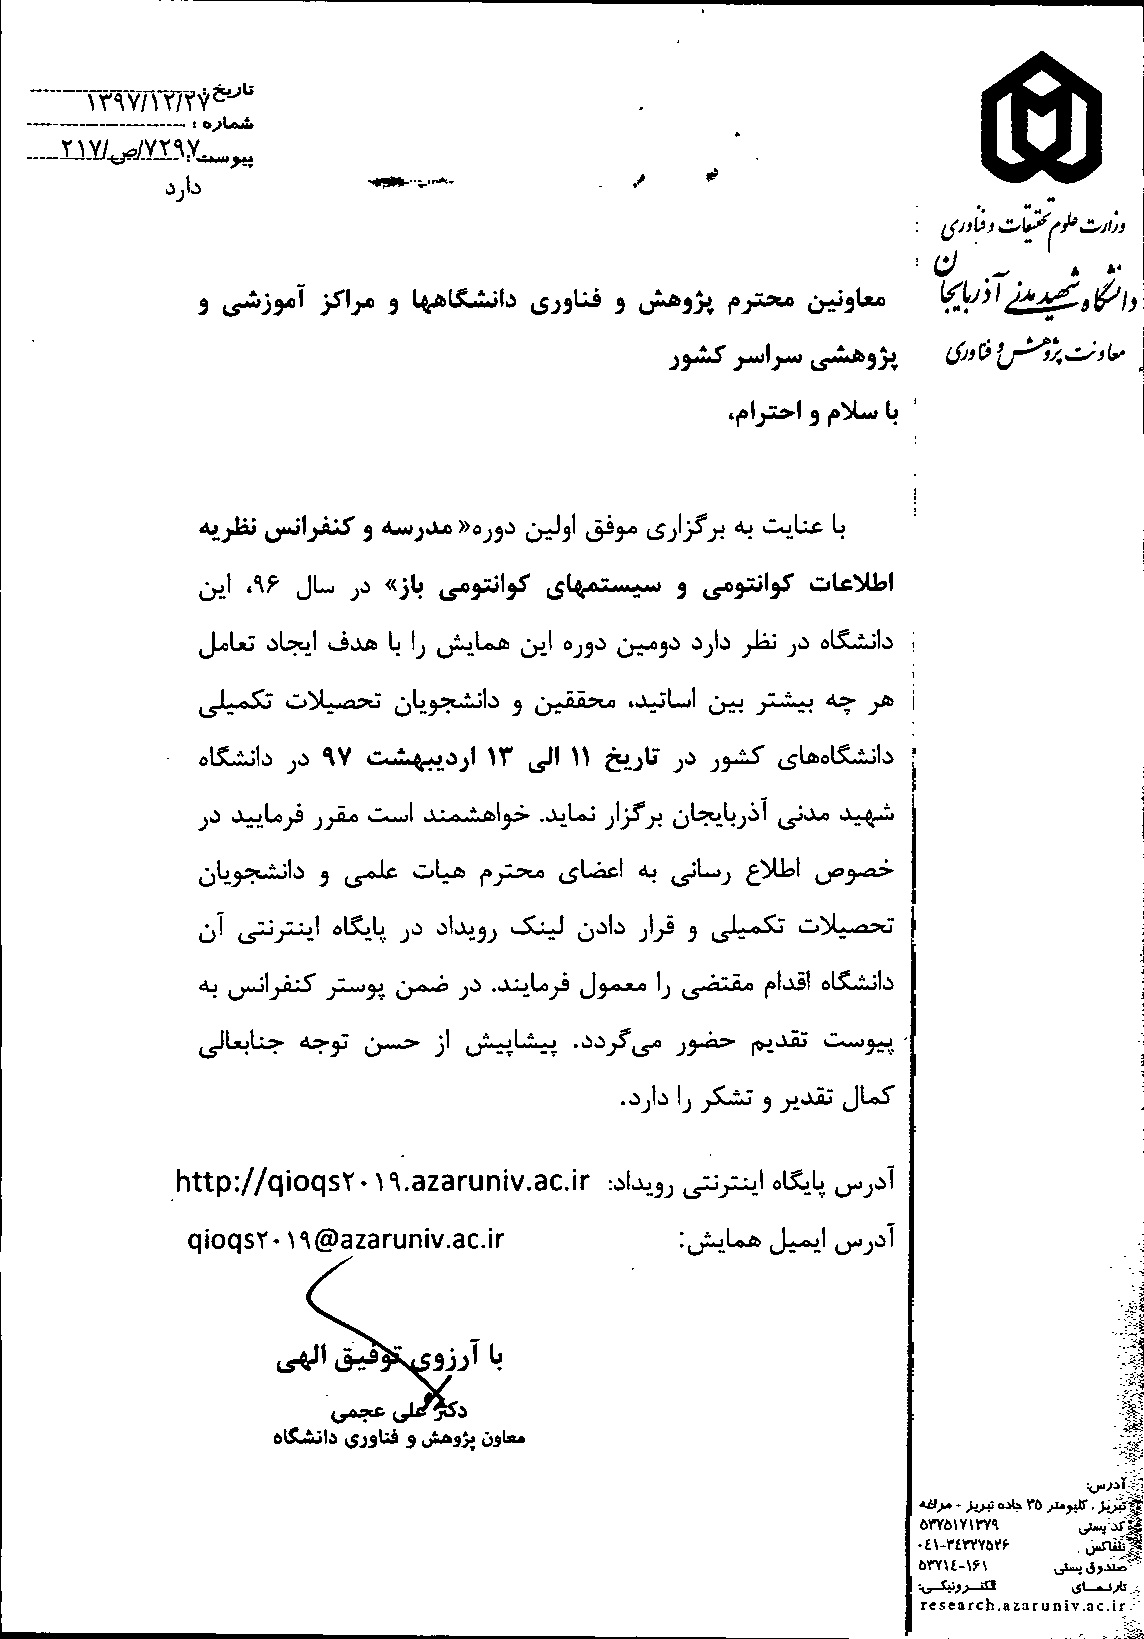 تاریخ : ۱۳۹۷/۱۲/۲۷
شماره :
پیوست: ۲۱۷/ص/۷۲۹۷
دارد
وزارت علوم تحقیقات و فناوری
دانشگاه شهید مدنی آذربایجان
معاونت پژوهش و فناوری
معاونین محترم پژوهش و فناوری دانشگاهها و مراکز آموزشی و
پژوهشی سراسر کشور
با سلام و احترام،
با عنایت به برگزاری موفق اولین دوره« مدرسه و کنفرانس نظریه
اطلاعات کوانتومی و سیستمهای کوانتومی باز» در سال ۹۶، این
دانشگاه در نظر دارد دومین دوره این همایش را با هدف ایجاد تعامل
هر چه بیشتر بین اساتید، محققین و دانشجویان تحصیلات تکمیلی
دانشگاه‌های کشور در تاریخ ۱۱ الی ۱۳ اردیبهشت ۹۷ در دانشگاه
شهید مدنی آذربایجان برگزار نماید. خواهشمند است مقرر فرمایید در
خصوص اطلاع رسانی به اعضای محترم هیات علمی و دانشجویان
تحصیلات تکمیلی و قرار دادن لینک رویداد در پایگاه اینترنتی آن
دانشگاه اقدام مقتضی را معمول فرمایند. در ضمن پوستر کنفرانس به
پیوست تقدیم حضور می‌گردد. پیشاپیش از حسن توجه جنابعالی
کمال تقدیر و تشکر را دارد.
آدرس پایگاه اینترنتی رویداد: http://qioqs۲۰۱۹.azaruniv.ac.ir
آدرس ایمیل همایش: qioqs۲۰۱۹@azaruniv.ac.ir
با آرزوی توفیق الهی
دکتر علی عجمی
معاون پژوهش و فناوری دانشگاه
آدرس:
تبریز . کلیومتر ۳۵ جاده تبریز - مراغه
کد پستی ۵۳۷۵۱۷۱۳۷۹
تلفاکس . ۰٤۱-۳٤۳۲۷۵۲۶
صندوق پستی ۵۳۷۱٤-۱۶۱
تارنمای الکترونیکی:
research.azaruniv.ac.ir